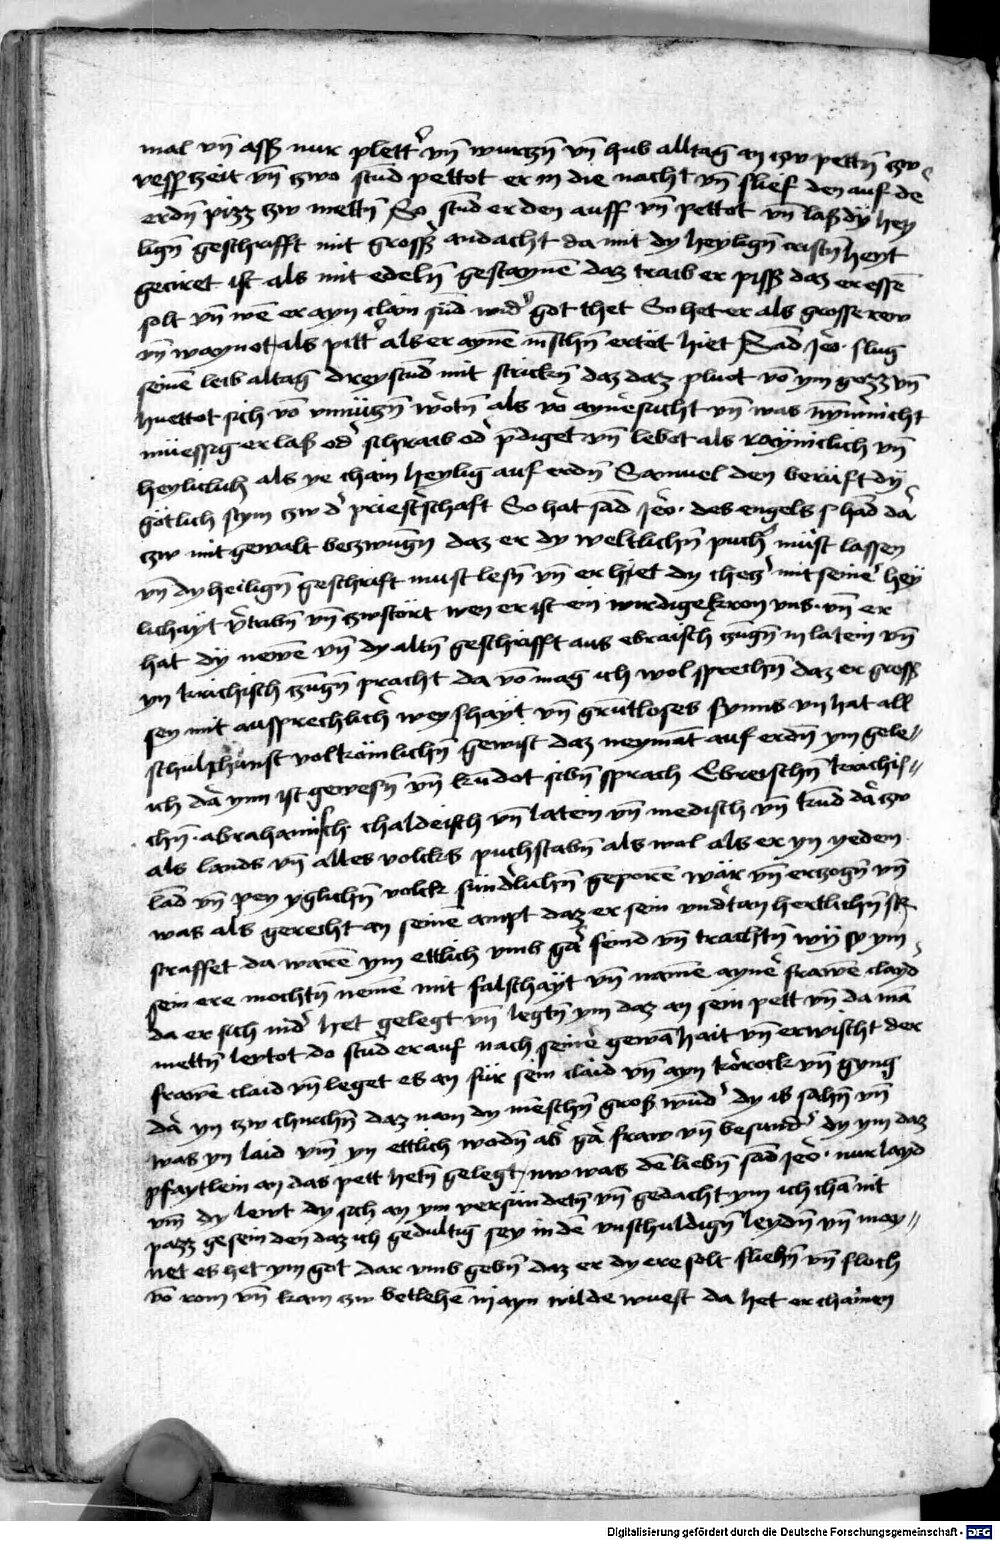 mal vn̄ aſſ nur plett̉ vn̄ wurczn̄ vn̄ hub alltag an czw pettn̄ czw
veſpͬczeit vn̄ czwo ſtūd pettot er in die nacht vn̄ ſlief den auf de̓
erdn̄ pizz czw mettn̄ So ſtūd er den auff vn̄ pettot vn̄ laß dÿ heÿ
lign̄ geſchrifft mit groſſ̉ andacht da mit dy heylign̄ criſtn̄heyt
gecziret iſt als mit edeln̄ geſtaynē daz traib er piſſ daz er eſſē
ſolt vn̄ wē er ayn clain ſūd wid̉ got thet So het er als groſſe rew
vn̄ waynot als pitt̉ als er aynē mēſchn̄ ertöt hiet Sād Jeo̓. ſlug
ſeinē leib altag dreyſtūd mit ſtrickn̄ daz daz pluot vō ym gozz vn̄
huettot ſich vō vnnüczn̄ wo̓tn̄ als vo̓ ayne̓ ſucht vn̄ was nÿm̓nicht
müeſſig er laß od̉ ſchraib od̉ p̄diget vn̄ lebet als rayniclich vn̄
heyliclich als ye chain heylig auf erdn̄ Samuel den berüft dÿ
götlich ſtym czw d̉ prieſt̉ſchaft So hat ſād Jeo̓. des engels hād da̓
czw mit gewalt beczwūgn daz er dy weltlichn̄ puch̉ müſt laſſen
vn̄ dy heilign̄ geſchrift muſt leſn̄ vn̄ er hiet dy checz̉ mit ſeine̓ hey
lichayt v̓tribn̄ vn̄ czwſtört wen er iſt ein wirdige kron vns. vn̄ er
hat dÿ newē vn̄ dy altn̄ geſchrifft aus ebraiſch czūgn̄ in latein vn̄
yn krichiſch czūgn̄ pracht da vō mag ich wol ſprechn̄ daz er groſſ
ſey mit auſſprechlich̉ weyſhayt vn̄ grūtloſes ſynns vn̄ hat all
ſchulchunſt volkömlichn̄ gewiſt daz neymāt auf erdn̄ ym gele〃
ich da̓ ynn iſt geweſn̄ vn̄ kūdot ſibn̄ ſprach Ebreiſchn̄ krachiſ〃
chn̄. abrahamiſch chaldeiſch vn̄ latein vn̄ mediſch vn̄ kūd da̓ czw
als lands vn̄ alles volcks puchſtabn̄ als wol als er yn yedem
lād vn̄ pey yglichn̄ volck ſünd̉lichn̄ geporē wär vn̄ erczogn̄ vn̄
was als gerecht an ſeinē ampt daz er ſein vnd̉tan hertlichn̄
ſtraffet da warē ym ettlich vmb ga̓ feind vn̄ trachtn̄ wÿ ſy ym
ſein ere mochtn̄ nemē mit falſchayt vn̄ namē ayne̓ frawē clayd
da er ſich nid̉ het gelegt vn̄ legtn̄ ym daz an ſein pett vn̄ da mā
mettn̄ leytot do ſtūd er auf nach ſeine̓ gewāhait vn̄ erwiſcht der
frawē claid vn̄ leget es an für ſein claid vn̄ ayn ko̓rock vn̄ gyng
da̓ yn czw chirchn̄ daz nam dy mēſchn̄ groß wūd̉ dy is ſahn̄ vn̄
was yn laid vm̄ yn ettlich wodn̄ ab̉ ga̓ fraw vn̄ beſund̉ dy ym daz
pfaytlein an das pett hetn̄ gelegt, nw was dē liebn̄ ſād Jeo̓. nur layd
vm̄ dy lewt dy ſich an ym verſündetn̄ vn̄ gedacht ym ich chā nit
pazz geſein den daz ich gedultig ſey in de vnſchuldign̄ leydn̄ vn̄ may〃
net es het ym got dar vmb gebn̄ daz er dy ere ſolt fliehn̄ vn̄ floch
vō rom vn̄ kam czw betlehē in ayn wilde wueſt da het er chainen
Digitalisierung gefördert durch die Deutsche Forschungsgemeinschaft - DFG